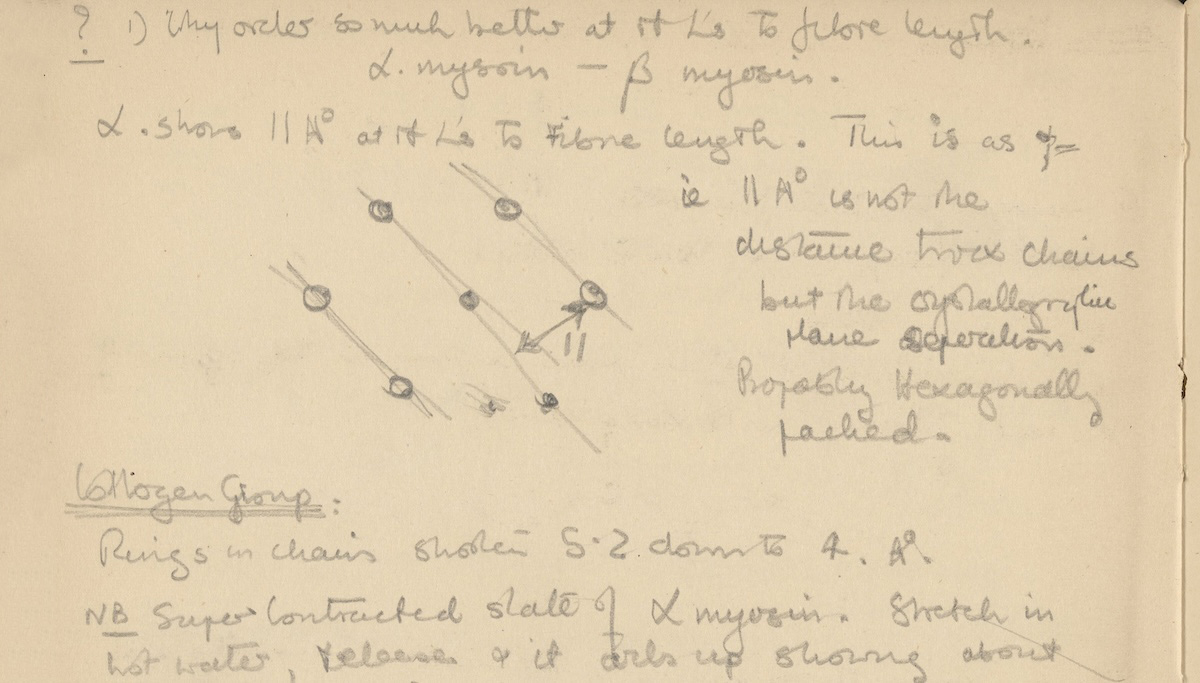 ? 1) Why order so much better at rt L's to fibre length.
α. mysoin — β myosin.
α. shows 11 A° at rt L's to Fibre length. This is as
ie 11 A° is not the
distance twix chains
but the crystallographic
plane seperation.
11
Propably Hexagonally
packed.
Collogen Group:
Rings in chain shorten 5.2 down to 4. A°.
NB Super Contracted state of α myosin. Stretch in
hot water, release & it curls up showing about